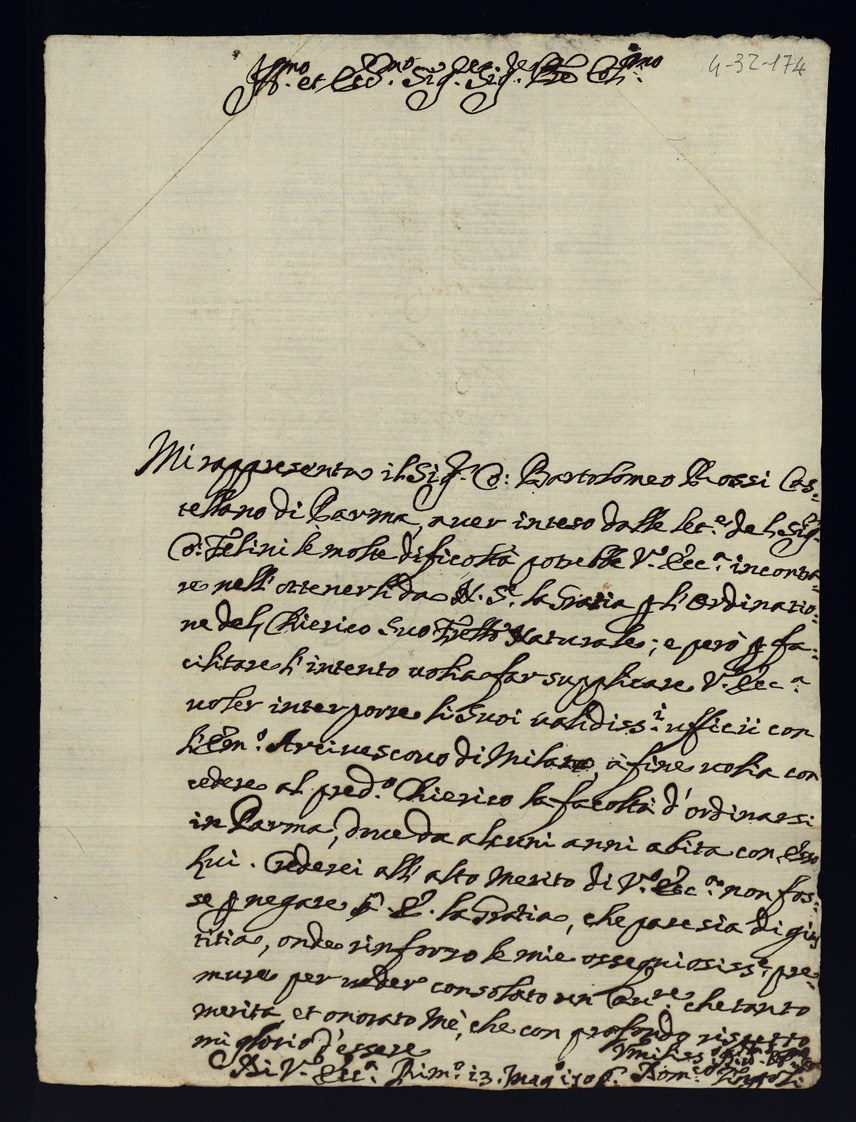 4-32-174
Ill.mo et Ecc.mo Sig.r Sig.r P.ne Col.mo
Mi rappresenta il Sig.r Co: Bartolomeo Rossi Cas=
tellano di Parma, aver inteso dalle let.e del Sig.r
Co: Felini le molte dificoltà potrebbe V.a Ecc.a incontra=
re nell'ottenerli da N. S.e la Gratia p l'Ordinatio=
ne del Chierico suo Frello Naturale; e però p fa=
cilitare l'intento uolia far supplicare V.a Ecc.a
uoler interporre li Suoi ualidiss.i ufficii con
l'Em.o Arciuescouo di Milano, à fine uolia con
cedere al pred.o Chierico la facoltà d'ordinarsi
in Parma, doue da alcuni anni abita con Esso
lui. Crederei all'alto merito di V.a Ecc.a non fos=
se p negare la Gratia, che pare sia di gius
titia, onde rinforzo le mie ossequiosiss.e pre
mure per ueder consolato un Cau.re che tanto
merita et onorato mè, che con profondo rispetto
mi glorio d'essere
Di V.a Ecc.a Rim.o 13. Mag.o